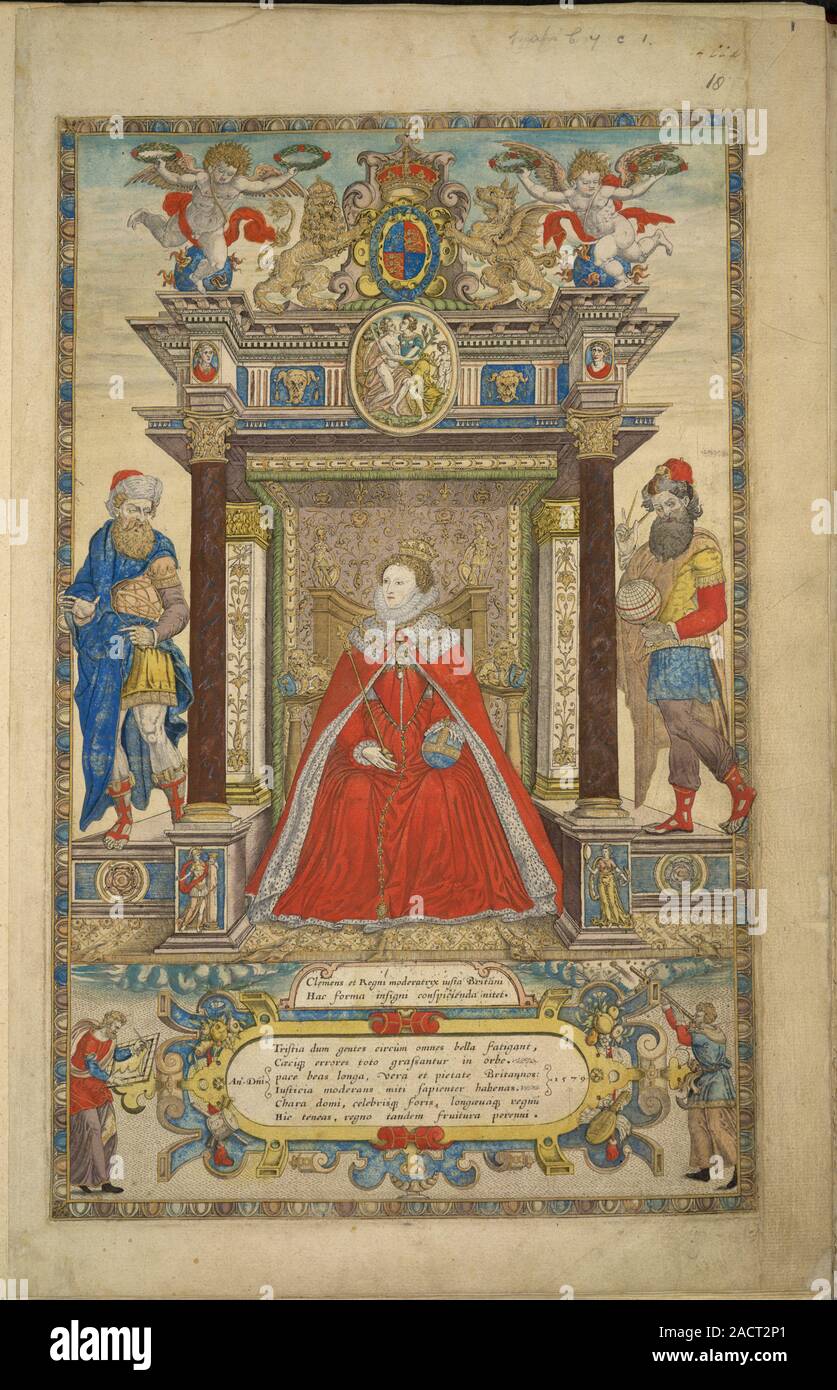 1
18
Clemens et Regni moderatryx iusta Britāni
Hac forma insigni conspicienda nitet.
Tristia dum gentes circùm omnes bella fatigant,
Cæciq; errores toto grassantur in orbe.
An° Dni pace beas longa, vera et pietate Britannos: 1579
Iusticia moderans miti sapienter habenas.
Chara domi, celebrisq; foris, longævaq; regnū
Hic teneas, regno tandem fruitura perenni.
alamy
Image ID: 2ACT2P1
www.alamy.com